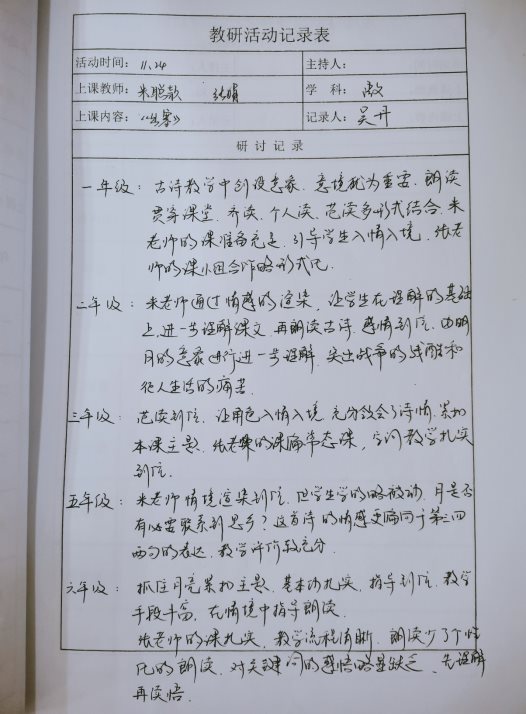 教研活动记录表
活动时间： 11.24 主持人：
上课教师： 朱聪歆 张娟 学科：
上课内容： 《出塞》 记录人： 吴丹
研讨记录
一年级： 古诗教学中创设意象、意境尤为重要，朗读
贯穿课堂，齐读、个人读、范读多形式结合，朱
老师的课准备充足，引导学生入情入境，张老
师的课小组合作略形式化。
二年级： 朱老师通过情感的渲染，让学生在理解的基础
上进一步理解课文，再朗读古诗，感情到位，由明
月的意象进行进一步理解，突出战争的残酷和
征人生活的痛苦。
三年级： 范读到位，让角色入情入境，充分领会了诗情，紧扣
本课主题，张老师的课偏常态课，字词教学扎实
到位。
五年级： 朱老师情境渲染到位，但学生学的略被动，月是否
有必要联系到思乡？这首诗的情感更偏向于第三四
两句的表达，教学评价较充分。
六年级： 抓住月亮紧扣主题，基本功扎实，指导到位，教学
手段丰富，在情境中指导朗读。
张老师的课扎实，教学流程清晰，朗读少了个性
化的朗读，对关键词的感悟略显缺乏，先理解
再读悟。